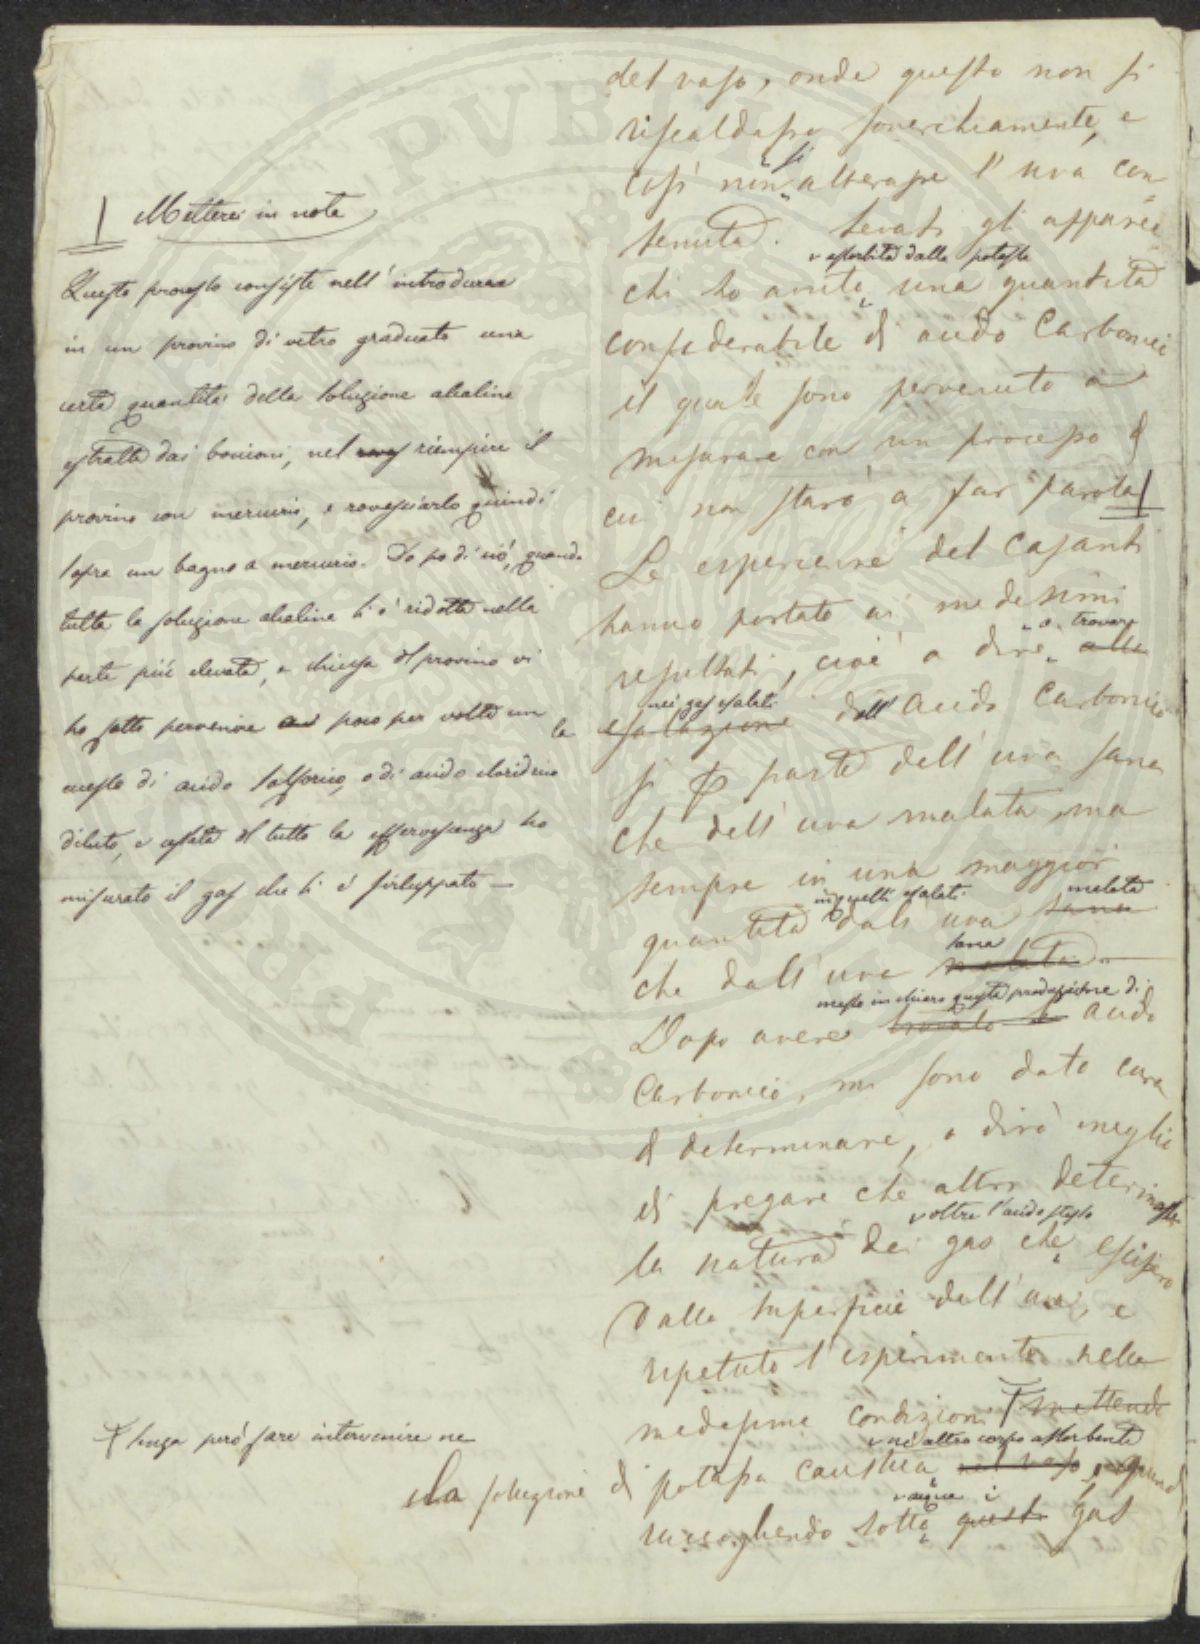 Mettere in note
Questo processo consiste nell' introdurre
in un provino di vetro graduato una
certa quantità della soluzione alcalina
estratta dai bocioni, nel riempire il
provino con mercurio, e rovesciarlo quindi
sopra un bagno a mercurio. Dopo di ciò, quando
tutta la soluzione alcalina si è ridotta nella
parte più elevata, e chiusa del provino vi
ho fatto pervenire poco per volta un
eccesso di acido solforico, o di acido cloridrico
diluto, e cessata del tutto la effervescenza ho
misurato il gas che si è sviluppato —
senza però fare intervenire ne
la soluzione di
del vaso, onde questo non si
riscaldasse soverchiamente, e
così non si alterasse l' uva con
tenuta. Levati gli apparec
assorbita dalla potassa
chi ho avuto una quantità
considerabile di acido Carbonico
il quale sono pervenuto a
misurare con un processo di
cui non starò a far parola
Le esperienze del Casanti
hanno portato ai medesimi
a trovare
resultati, cioè a dire alla
nei gas esalati
esalazione dell' acido Carbonico
si p parte dell' uva sana
che dell' uva malata, ma
sempre in una maggior
in quelli esalati malata
quantità dall' uva sana
sana
che dall' uva malata
messo in chiaro questa produzione di
Dopo avere trovato l' acido
Carbonico, mi sono dato cura
di determinare, o dirò meglio
di pregare che altri determinasse
oltre l' acido stesso
la natura dei gas che escissero
dalla superficie dell' uva, e
ripetuto l' esperimento nelle
medesime condizioni mettendo
nè altro corpo assorbente
potassa caustica nel vaso, e quindi
acqua i
raccogliendo sotto questo gas